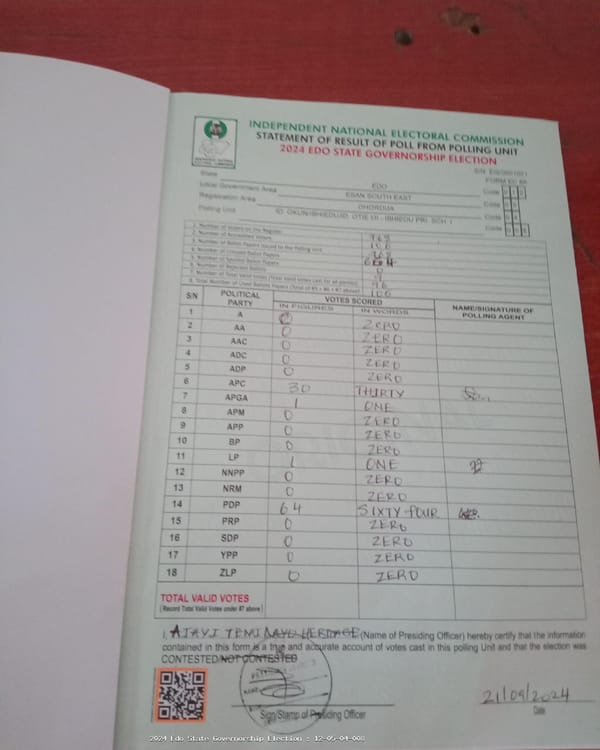 INDEPENDENT NATIONAL ELECTORAL COMMISSION
STATEMENT OF RESULT OF POLL FROM POLLING UNIT
2024 EDO STATE GOVERNORSHIP ELECTION
State EDO Code
Local Government Area ESAN SOUTH EAST Code
Registration Area OHORDUA Code
Polling Unit PRI. SCH. I Code
1. Number of Voters on the Register
2. Number of Accredited Voters 100
3. Number of Ballot Papers Issued to the Polling Unit
4. Number of Unused Ballot Papers
5. Number of Spoiled Ballot Papers 0
6. Number of Rejected Ballots
7. Number of Total Valid Votes (Total Valid Votes cast for all parties) 96
8. Total Number of Used Ballot Papers (Total of #5 + #6 + #7 above) 100
SN POLITICAL PARTY VOTES SCORED NAME/SIGNATURE OF POLLING AGENT
IN FIGURES IN WORDS
1 A 0 ZERO
2 AA 0 ZERO
3 AAC 0 ZERO
4 ADC 0 ZERO
5 ADP 0 ZERO
6 APC 30 THIRTY
7 APGA 1 ONE
8 APM 0 ZERO
9 APP 0 ZERO
10 BP 0 ZERO
11 LP 1 ONE
12 NNPP 0 ZERO
13 NRM 0 ZERO
14 PDP 64 SIXTY-FOUR
15 PRP 0 ZERO
16 SDP 0 ZERO
17 YPP 0 ZERO
18 ZLP 0 ZERO
TOTAL VALID VOTES
(Record Total Valid Votes under #7 above)
I, AJAYI TEMIDAYO HERITAGE (Name of Presiding Officer) hereby certify that the information
contained in this form is a true and accurate account of votes cast in this polling Unit and that the election was
CONTESTED/NOT CONTESTED
21/09/2024
Sign/Stamp of Presiding Officer Date
2024 Edo State Governorship Election : 12-05-04-008